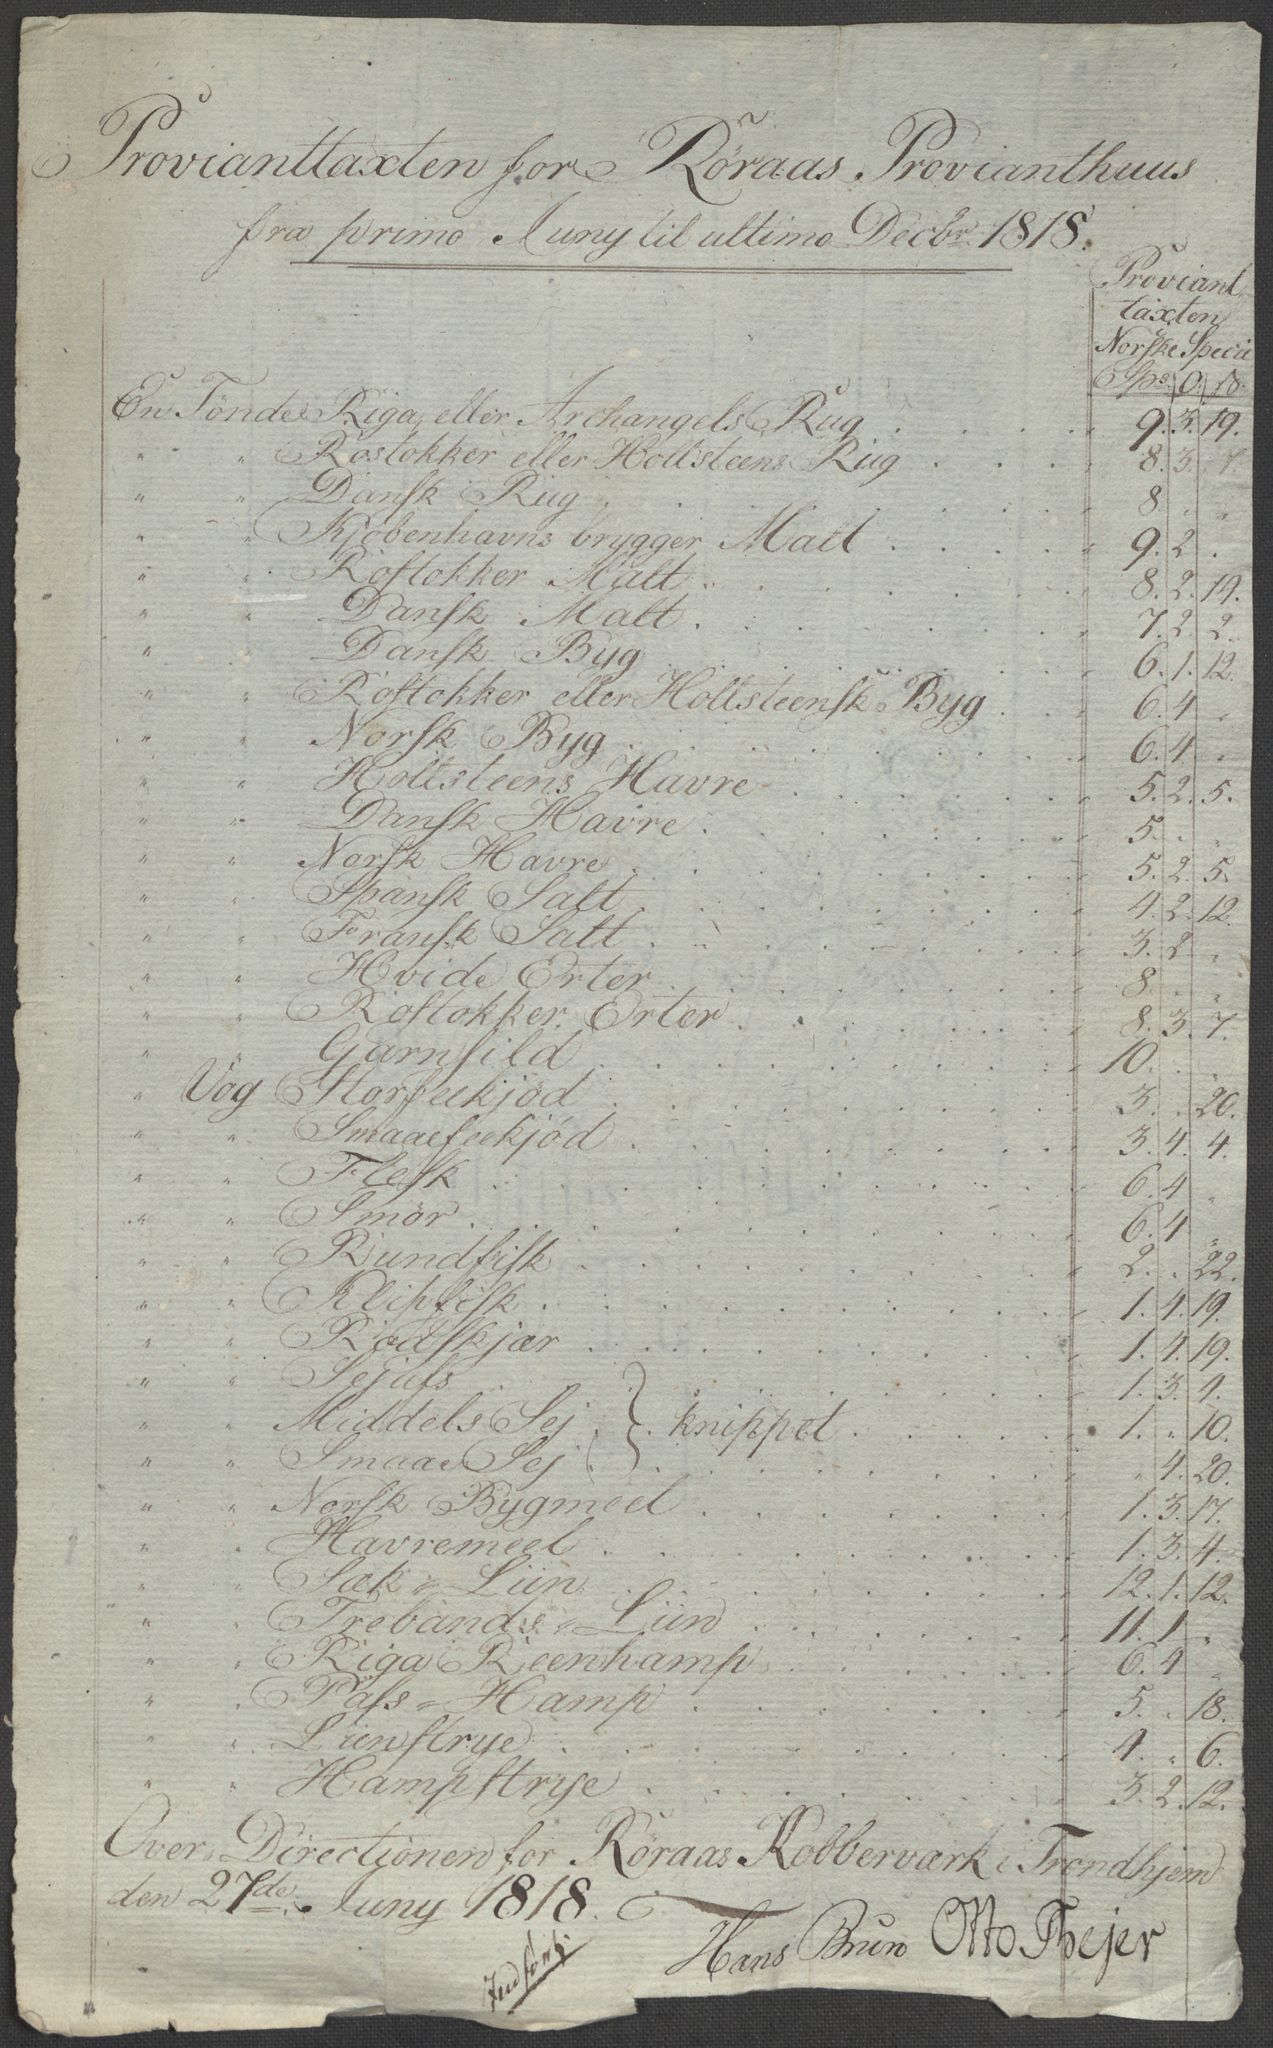 Provianttaxten for Röraas Provianthuus
fra primo Juny til ultimo Decbr 1818.
Proviant
taxten
Norske Specie
Sps. O. ß.
En Tönde Riga eller Archangels Rug . . . 9. 3. 19.
" " Rostokker eller Hollsteens Rug . . . 8. 3. 7.
" " Dansk Rug . . . 8. " "
" " Kjöbenhavns brygger Malt . . . 9. 2. "
" " Rostokker Malt . . . 8. 2. 19.
" " Dansk Malt . . . 7. 2. 2.
" " Dansk Byg . . . 6. 1. 12.
" " Rostokker eller Holtsteensk Byg . . . 6. 4. "
" " Norsk Byg . . . 6. 4. "
" " Holtsteens Havre . . . 5. 2. 5.
" " Dansk Havre . . . 5. " "
" " Norsk Havre . . . 5. 2. 5.
" " Spansk Salt . . . 4. 2. 12.
" " Fransk Salt . . . 3. 2. "
" " Hvide Erter . . . 8. " "
" " Rostokker Erter . . . 8. 3. 7.
" " Garnsild . . . 10. " "
" Vog Storfeekjöd . . . 3. " 20.
" " Smaaefeekjöd . . . 3. 4. 4.
" " Flesk . . . 6. 4. "
" " Smör . . . 6. 4. "
" " Rundfisk . . . 2. " 22.
" " Klipfisk . . . 1. 4. 19.
" " Rodskjær . . . 1. 4. 19.
" " Sejufs . . . 1. 3. 9.
" " Middels Sej } knippet . . . 1. " 10.
" " Smaae Sej . . . " 4. 20.
" " Norsk Bygmeel . . . 1. 3. 17.
" " Havremeel . . . 1. 3. 4.
" " Sæk Liin . . . 12. 1. 12.
" " Trebands Liin . . . 11. 1. "
" " Riga Reenhamp . . . 6. 4. "
" " Pass Hamp . . . 5. " 18.
" " Liinstrye . . . 4. " 6.
" " Hampstrye . . . 3. 2. 12.
Over Directionen for Röraas Kobberværk i Trondhjem
den 27de Juny 1818.
Hans Brun Otto Thejer